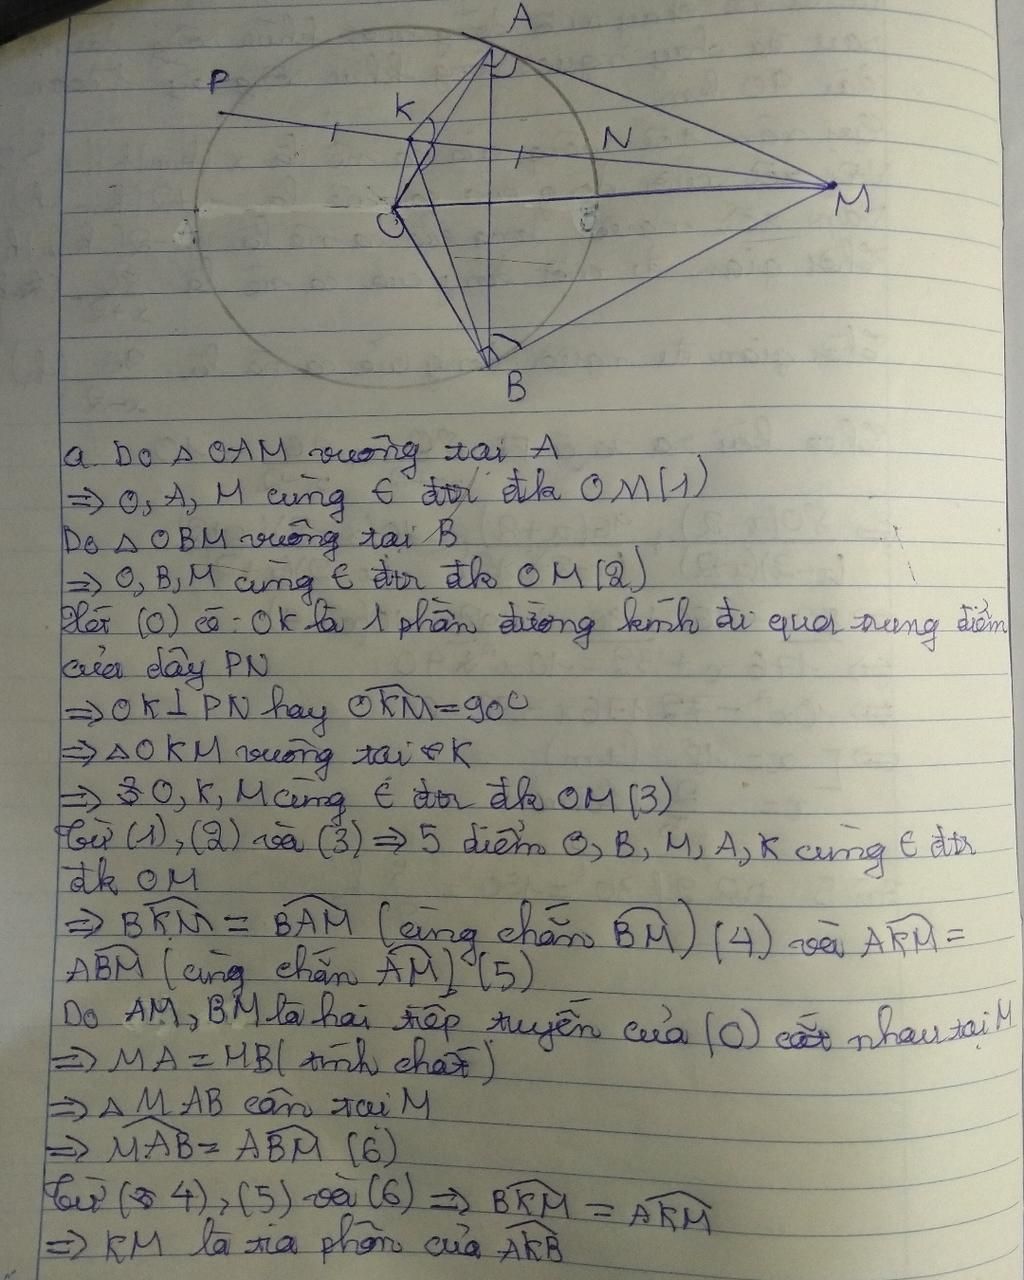 A
P
K
N
M
O
B
a. Do △ OAM vuông tại A
=> O, A, M cùng ∈ đtr đk OM (1)
Do △ OBM vuông tại B
=> O, B, M cùng ∈ đtr đk OM (2)
Xét (O) có: OK là 1 phần đường kính đi qua trung điểm
của dây PN
=> OK ⊥ PN hay OKM = 90°
=> △ OKM vuông tại K
=> O, K, M cùng ∈ đtr đk OM (3)
Từ (1), (2) và (3) => 5 điểm O, B, M, A, K cùng ∈ đtr
đk OM
=> BKM = BAM (cùng chắn BM) (4) và AKM =
ABM (cùng chắn AM) (5)
Do AM, BM là hai tiếp tuyến của (O) cắt nhau tại M
=> MA = MB (tính chất)
=> △ MAB cân tại M
=> MAB = ABM (6)
Từ (4), (5) và (6) => BKM = AKM
=> KM là tia phân của AKB